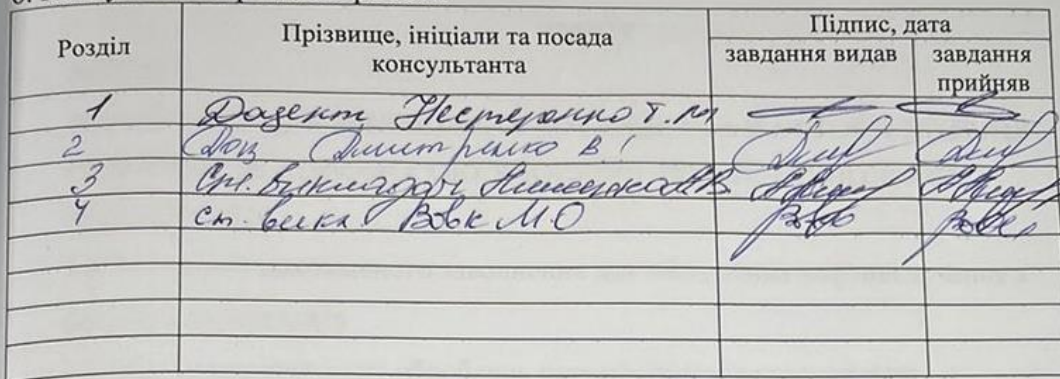 Розділ Прізвище, ініціали та посада консультанта Підпис, дата
завдання видав завдання прийняв
1 Доцент Нестеренко Т.М
2 Доц Дмитренко В І
3 Ст. викладач
4 ст. викл Вовк М.О